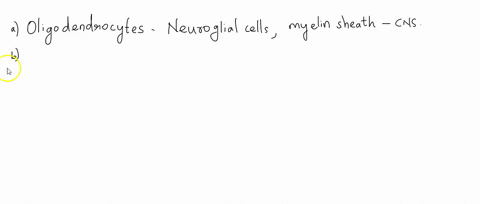 a) Oligodendrocytes - Neuroglial cells, myelin sheath - CNS.
b)